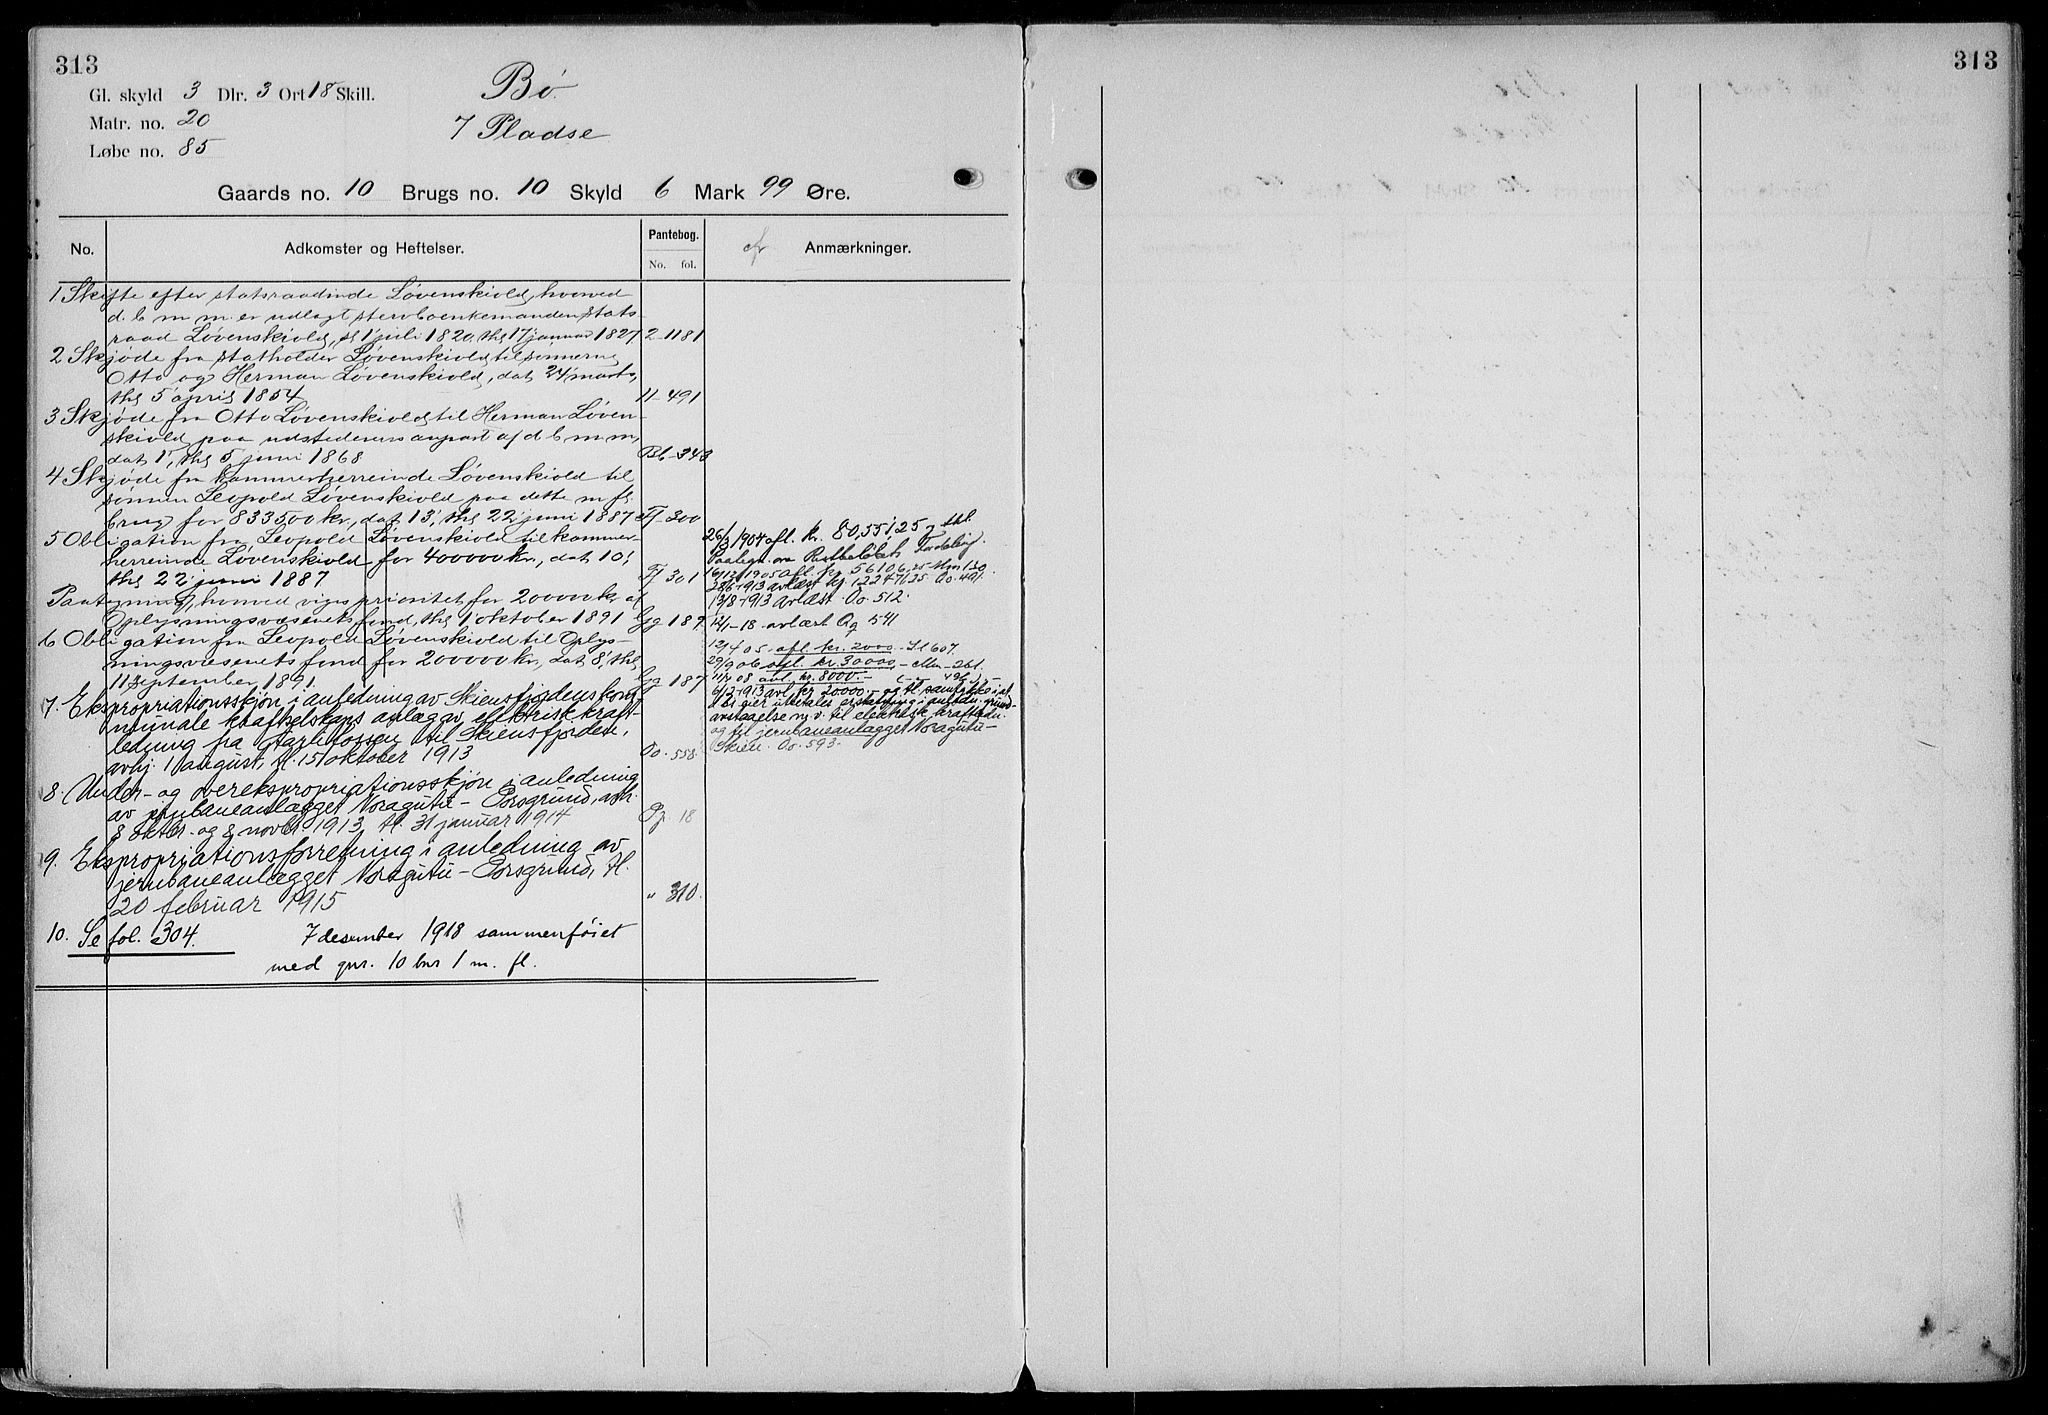 313
313
Gl. skyld 3 Dlr. 3 Ort 18 Skill.
Bö
Matr. no. 20
7 Pladse
Løbe no. 85
Gaards no. 10 Brugs no. 10 Skyld 6 Mark 99 Øre.
No. Adkomster og Heftelser. Pantebog. No. fol. Anmærkninger.
1 Skifte efter statsraadinde Løvenskiold, hvorved
d. b m m. er udlagt stervboenkemanden stats-
raad Løvenskiold, sl 1 juli 1820, thl 17 januar 1827 2-1181
2 Skjøde fra statholder Løvenskiold til sønnerne
Otto og Herman Løvenskiold, dat 24 marts,
thl 5 april 1854 11-491
3 Skjøde fra Otto Løvenskiold til Herman Løven-
skiold paa udstederens anpart af d b m m,
dat 1', thl 5 juni 1868 Bb-343
4 Skjøde fra kammerherreinde Løvenskiold til
sønnen Leopold Løvenskiold paa dette m fl
brug for 833500 kr., dat 13', thl 22' juni 1887 Ff 300
5 Obligation fra Leopold Løvenskiold til kammer-
herreinde Løvenskiold for 400000 kr., dat 10',
thl 22' juni 1887 Ff 301
Paategning, hvorved viges prioritet for 200000 kr af
Oplysningsvæsenets fond, thl 1 oktober 1891 Gg 189
6 Obligation fra Leopold Løvenskiold til Oplys-
ningsvæsenets fond for 200000 kr., dat 8', thl
11 september 1891. Gg 187
7. Ekspropriationsskjøn i anledning av Skiensfjordens kom-
munale kraftselskaps anlæg av elektrisk kraft-
ledning fra til Skiensfjorden,
avhj. 1 august, tl. 15 oktober 1913 Oo. 558.
8. Under- og overekspropriationsskjøn i anledning
av jernbaneanlægget Noragutu - Porsgrund, avh.
8 oktbr. og 8 novbr 1913, tl. 31 januar 1914 Pp 18
9. Ekspropriationsforretning i anledning av
jernbaneanlægget Noragutu - Porsgrund, tl.
20 februar 1915 " 310.
10. Se fol. 304. 7 desember 1918 sammenføiet
med gnr. 10 bnr 1 m. fl.
26/3 1904 afl. kr. 80,551,25 og thl.
Paategn om Restbeløbets Fordeling.
1905 afl kr 56106,25 Mm 130
1913 avlæst kr 122471,25 Oo. 491.
13/8-1913 avlæst. Oo. 512.
12/1-18 avlæst Qq 541
12/4 05. afl. kr. 2000 607.
29/9 06 afl. kr. 30000,- Mm-261.
08 avl. kr. 8000.- 496
6/12-1913 avl. kr. 20000.- og tl. samtykke i at
utbetales erstatning i anledn. grund-
avstaaelse m. v. til elektrisk kraftledn.
og til jernbaneanlægget Noragutu -
Skien. Oo. 593.